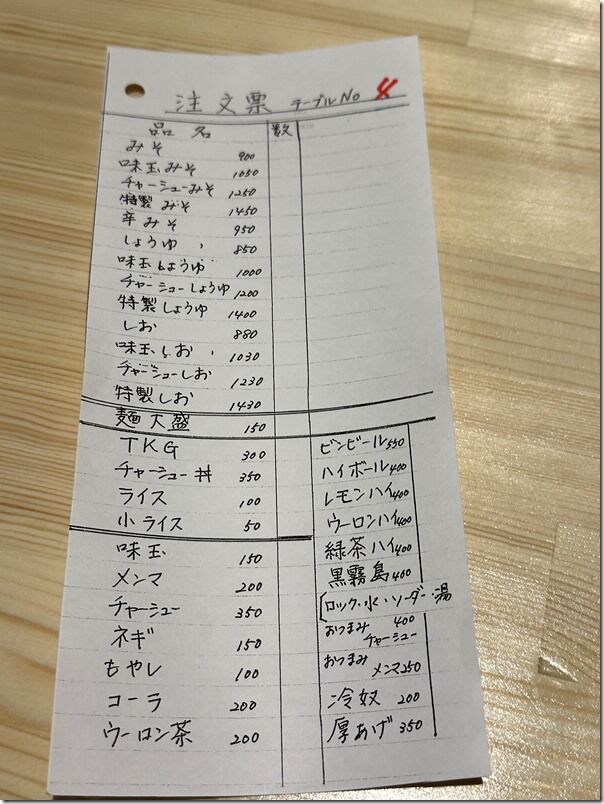 注文票 テーブルNo 4
品名 数
みそ 900
味玉みそ 1050
チャーシューみそ 1250
特製みそ 1450
辛みそ 950
しょうゆ 850
味玉しょうゆ 1000
チャーシューしょうゆ 1200
特製しょうゆ 1400
しお 880
味玉しお 1030
チャーシューしお 1230
特製しお 1430
麺大盛 150
TKG 300
チャーシュー丼 350
ライス 100
小ライス 50
味玉 150
メンマ 200
チャーシュー 350
ネギ 150
もやし 100
コーラ 200
ウーロン茶 200
ビンビール 550
ハイボール 400
レモンハイ 400
ウーロンハイ 400
緑茶ハイ 400
黒霧島 400
[ロック・水・ソーダー・湯
おつまみ 400
チャーシュー
おつまみ
メンマ 250
冷奴 200
厚あげ 350